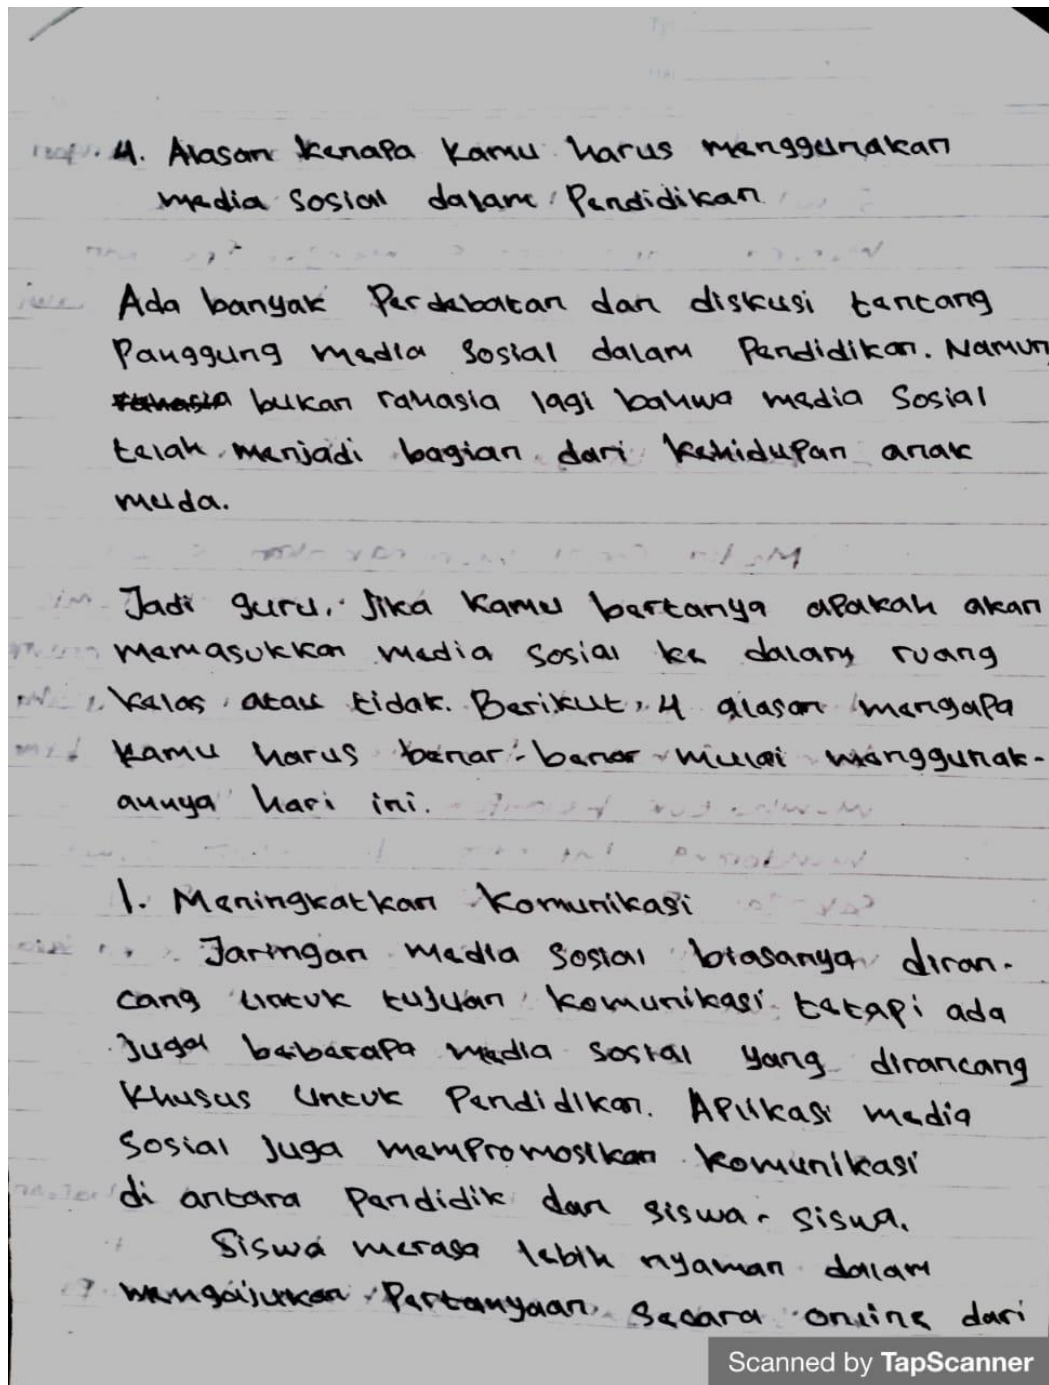 4. Alasan kenapa kamu harus menggunakan
media sosial dalam Pendidikan
Ada banyak Perdebatan dan diskusi tentang
Panggung media sosial dalam Pendidikan. Namun
bukan rahasia lagi bahwa media sosial
telah menjadi bagian dari kehidupan anak
muda.
Jadi guru, Jika kamu bertanya apakah akan
memasukkan media sosial ke dalam ruang
kelas atau tidak. Berikut, 4 alasan mengapa
kamu harus benar-benar mulai menggunak-
annya hari ini.
1. Meningkatkan komunikasi
Jaringan media sosial biasanya diran-
cang untuk tujuan komunikasi tetapi ada
juga beberapa media sosial yang dirancang
khusus untuk Pendidikan. Aplikasi media
sosial juga mempromosikan komunikasi
di antara pendidik dan siswa-siswa.
Siswa merasa lebih nyaman dalam
mengajukan Pertanyaan secara online dari
Scanned by TapScanner